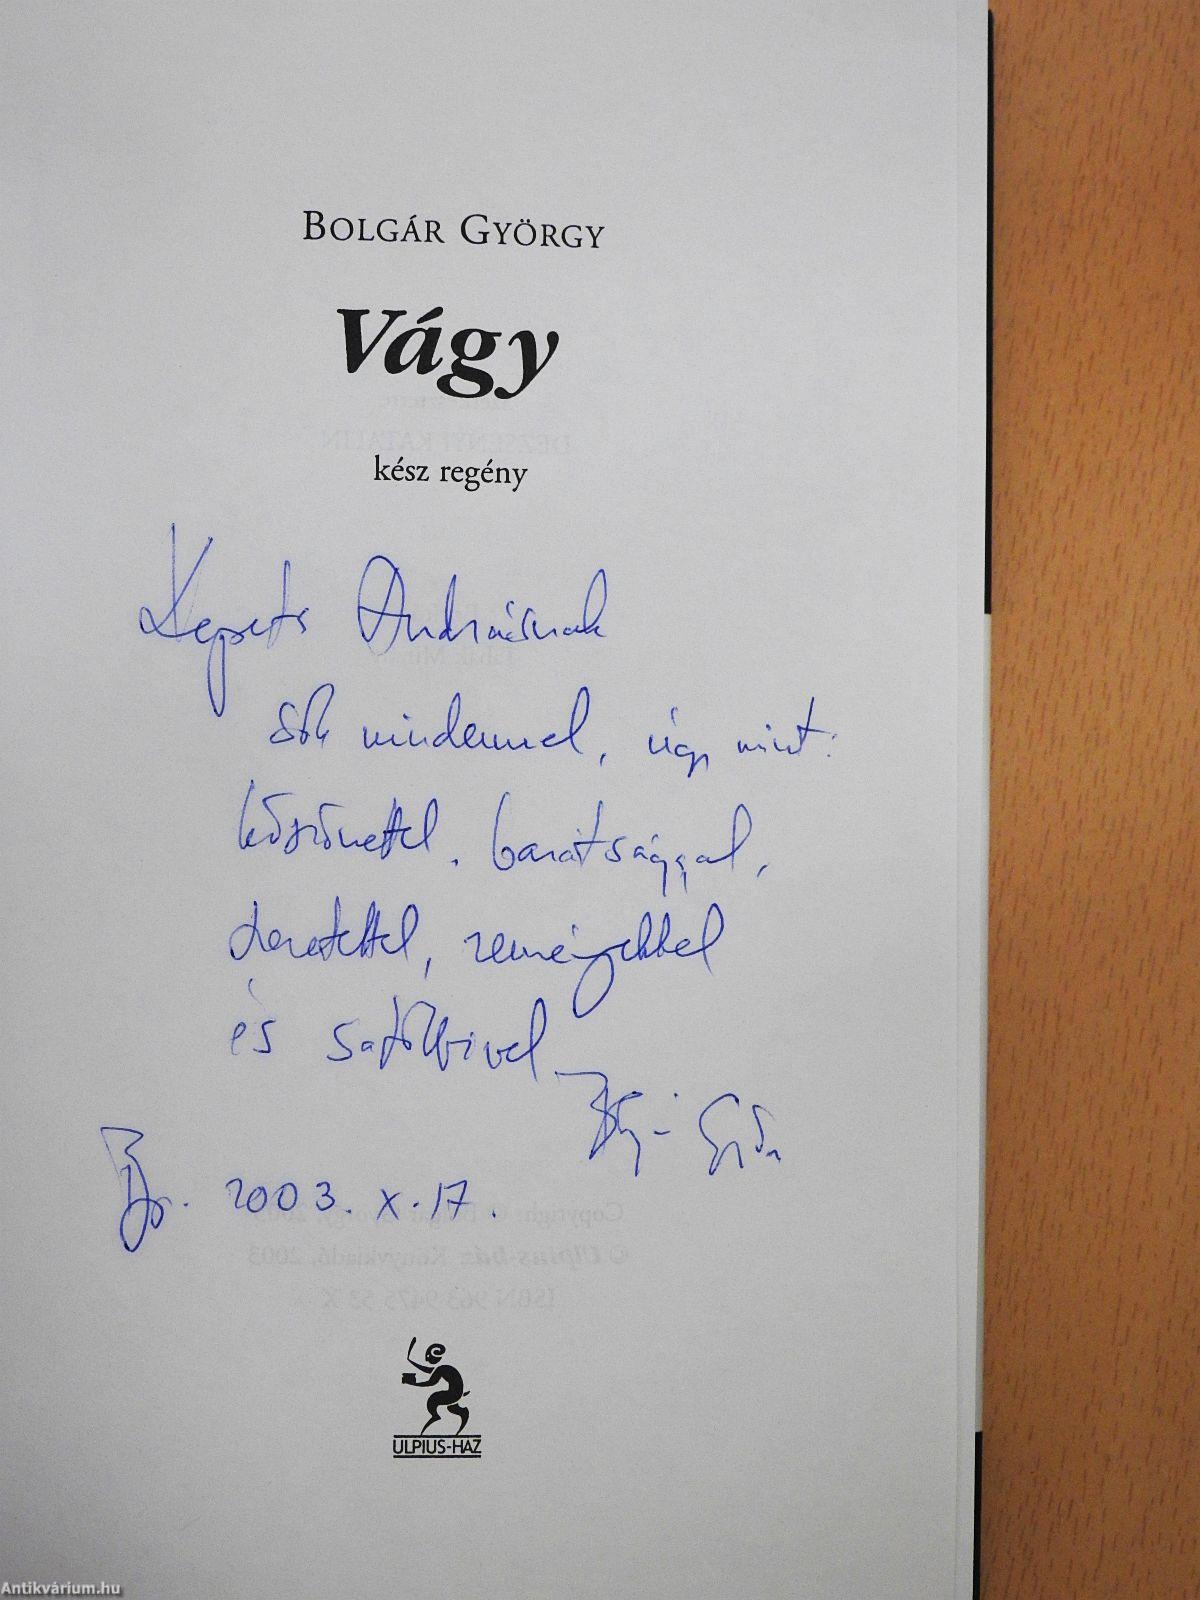 BOLGÁR GYÖRGY
Vágy
kész regény
Kepes Andrásnak
sok mindennel, úgy mint:
köszönettel, barátsággal,
szeretettel, reményekkel
és satöbbivel
Bp. 2003. X. 17.
ULPIUS-HÁZ
Antikvárium.hu